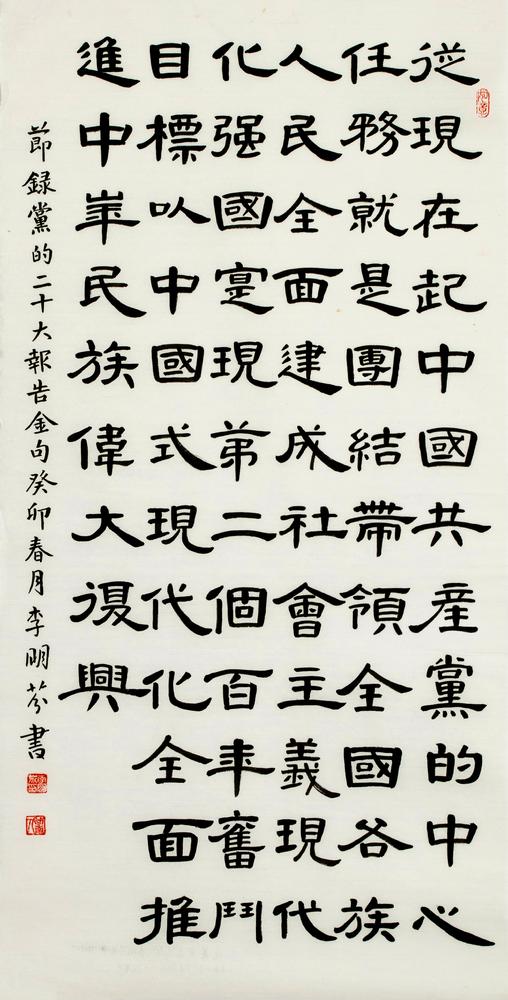 從現在起中國共産黨的中心
任務就是團結帶領全國各族
人民全面建成社會主義現代
化强國寔現第二個百年奮鬥
目標以中國式現代化全面推
進中華民族偉大復興
節録黨的二十大報告金句癸卯春月李明芬書